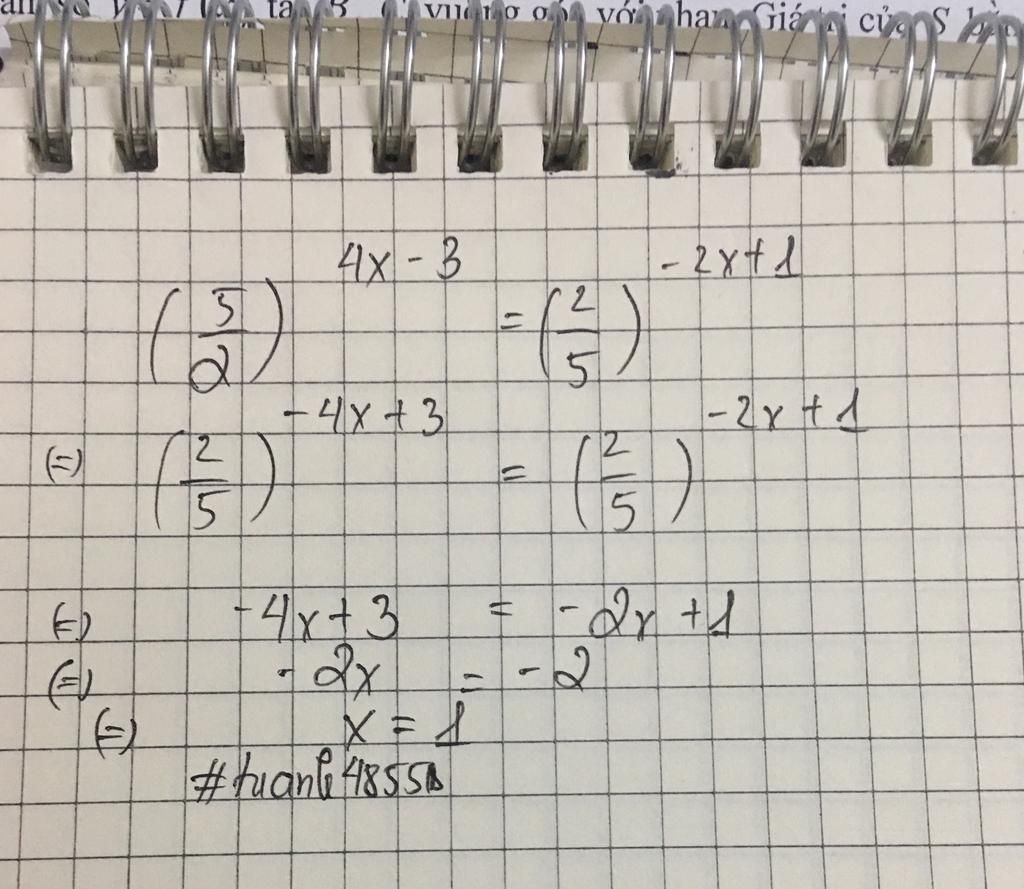 vuông góc với nhau Giá trị của S
(5/2)^(4x - 3) = (2/5)^(-2x+1)
(=) (2/5)^(-4x+3) = (2/5)^(-2x+1)
(=) -4x+3 = -2x+1
(=) -2x = -2
(=) x = 1